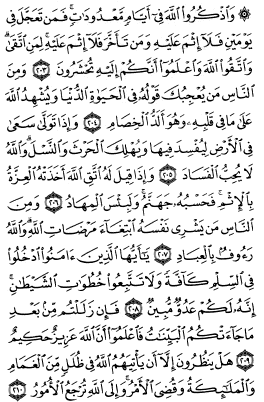 ۞ وَٱذْكُرُوا۟ ٱللَّهَ فِىٓ أَيَّامٍ مَّعْدُودَٰتٍ ۚ فَمَن تَعَجَّلَ فِى
يَوْمَيْنِ فَلَآ إِثْمَ عَلَيْهِ وَمَن تَأَخَّرَ فَلَآ إِثْمَ عَلَيْهِ ۚ لِمَنِ ٱتَّقَىٰ ۗ
وَٱتَّقُوا۟ ٱللَّهَ وَٱعْلَمُوٓا۟ أَنَّكُمْ إِلَيْهِ تُحْشَرُونَ ٢٠٣ وَمِنَ
ٱلنَّاسِ مَن يُعْجِبُكَ قَوْلُهُۥ فِى ٱلْحَيَوٰةِ ٱلدُّنْيَا وَيُشْهِدُ ٱللَّهَ
عَلَىٰ مَا فِى قَلْبِهِۦ وَهُوَ أَلَدُّ ٱلْخِصَامِ ٢٠٤ وَإِذَا تَوَلَّىٰ سَعَىٰ
فِى ٱلْأَرْضِ لِيُفْسِدَ فِيهَا وَيُهْلِكَ ٱلْحَرْثَ وَٱلنَّسْلَ ۗ وَٱللَّهُ
لَا يُحِبُّ ٱلْفَسَادَ ٢٠٥ وَإِذَا قِيلَ لَهُ ٱتَّقِ ٱللَّهَ أَخَذَتْهُ ٱلْعِزَّةُ
بِٱلْإِثْمِ ۚ فَحَسْبُهُۥ جَهَنَّمُ ۚ وَلَبِئْسَ ٱلْمِهَادُ ٢٠٦ وَمِنَ
ٱلنَّاسِ مَن يَشْرِى نَفْسَهُ ٱبْتِغَآءَ مَرْضَاتِ ٱللَّهِ ۗ وَٱللَّهُ
رَءُوفٌۢ بِٱلْعِبَادِ ٢٠٧ يَٰٓأَيُّهَا ٱلَّذِينَ ءَامَنُوا۟ ٱدْخُلُوا۟
فِى ٱلسِّلْمِ كَآفَّةً وَلَا تَتَّبِعُوا۟ خُطُوَٰتِ ٱلشَّيْطَٰنِ ۚ
إِنَّهُۥ لَكُمْ عَدُوٌّ مُّبِينٌ ٢٠٨ فَإِن زَلَلْتُم مِّنۢ بَعْدِ
مَا جَآءَتْكُمُ ٱلْبَيِّنَٰتُ فَٱعْلَمُوٓا۟ أَنَّ ٱللَّهَ عَزِيزٌ حَكِيمٌ
٢٠٩ هَلْ يَنظُرُونَ إِلَّآ أَن يَأْتِيَهُمُ ٱللَّهُ فِى ظُلَلٍ مِّنَ ٱلْغَمَامِ
وَٱلْمَلَٰٓئِكَةُ وَقُضِىَ ٱلْأَمْرُ ۚ وَإِلَى ٱللَّهِ تُرْجَعُ ٱلْأُمُورُ ٢١٠